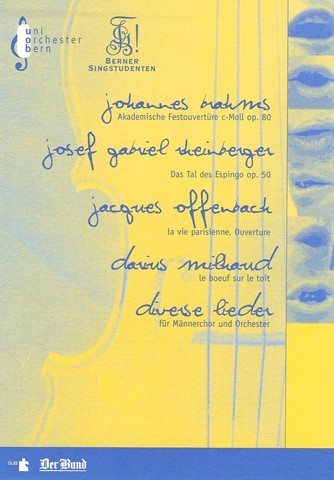 uni
orchester
bern
BERNER
SINGSTUDENTEN
johannes brahms
Akademische Festouvertüre c-Moll op. 80
josef gabriel rheinberger
Das Tal des Espingo op. 50
jacques offenbach
la vie parisienne, Ouverture
darius milhaud
le boeuf sur le toit
diverse lieder
für Männerchor und Orchester
SUB
Der Bund